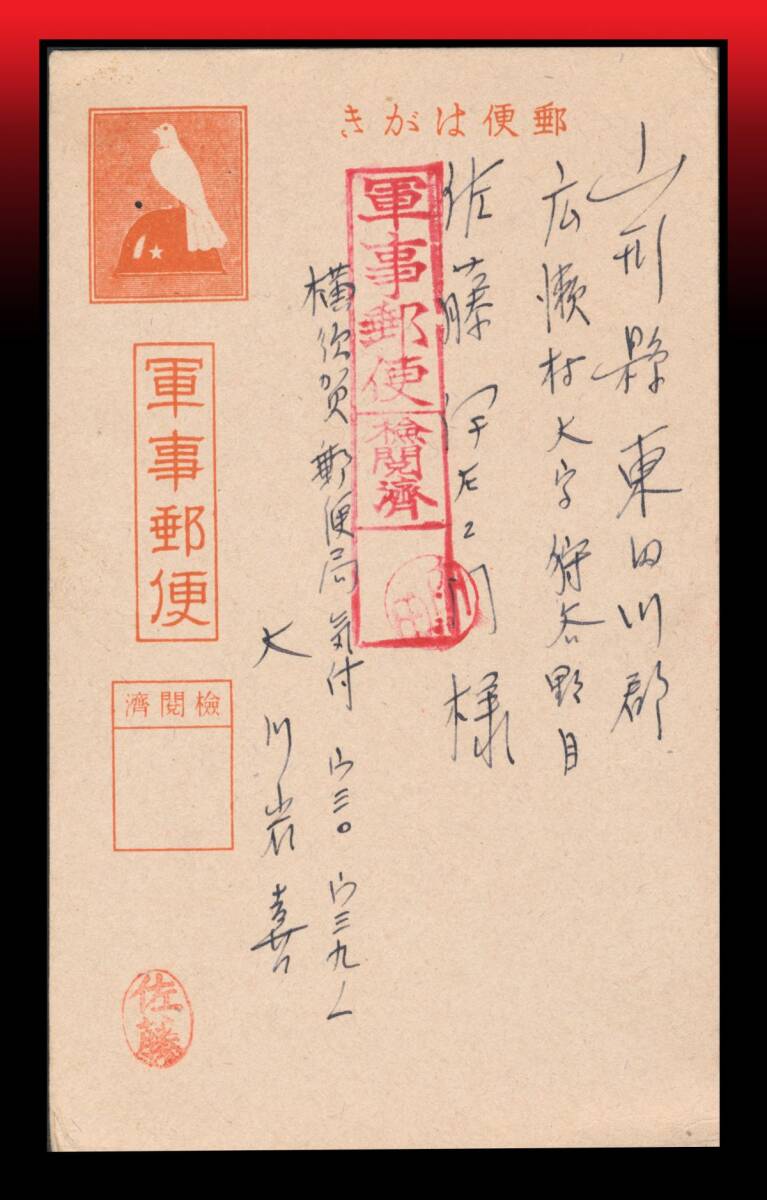 郵便はがき
山形縣東田川郡
広瀬村大字狩谷野目
佐藤伊左エ門様
軍事郵便
検閲済
横須賀郵便局気付 ウ三〇 ウ三九
大川岩喜
軍事郵便
検閲済
佐藤